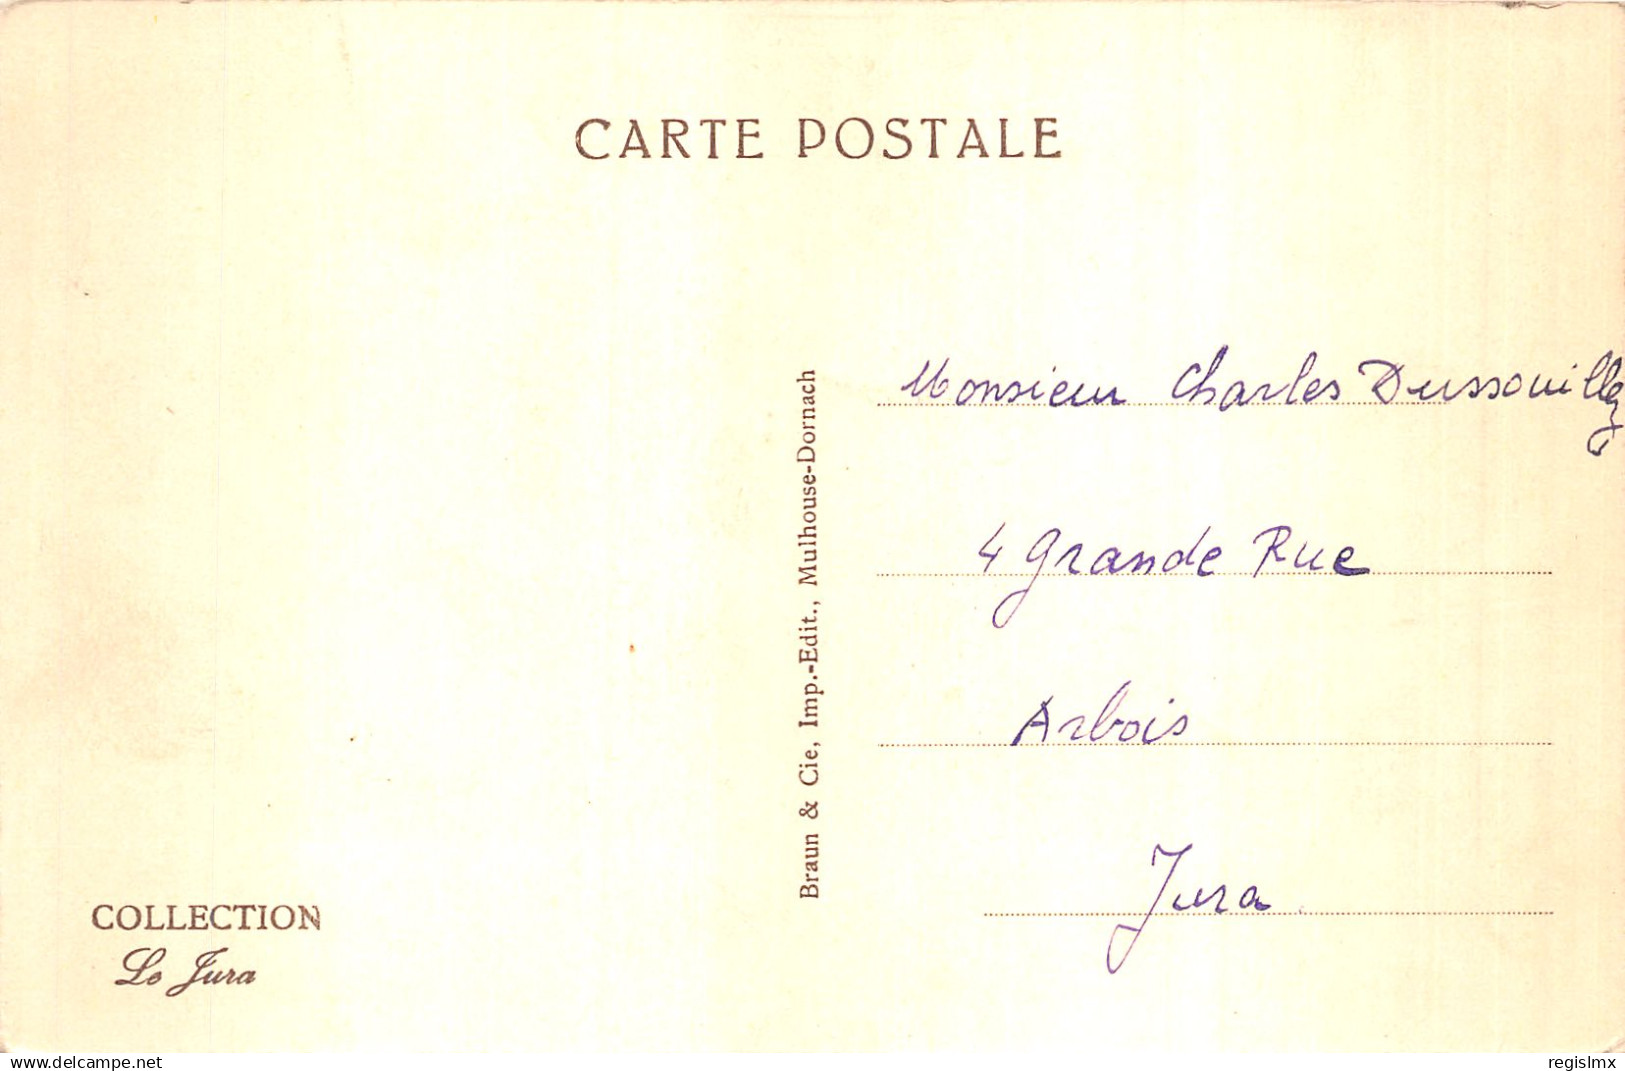 CARTE POSTALE
Monsieur Charles Dussouillez
4 Grande Rue
Arbois
Jura
Braun & Cie, Imp.-Edit., Mulhouse-Dornach
COLLECTION
Le Jura
www.delcampe.net
regislmx